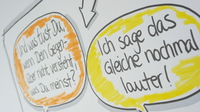 Und was tust Du,
wenn Dein Gegen-
über nicht versteht
was Du meinst?
Ich sage das
Gleiche nochmal
lauter!